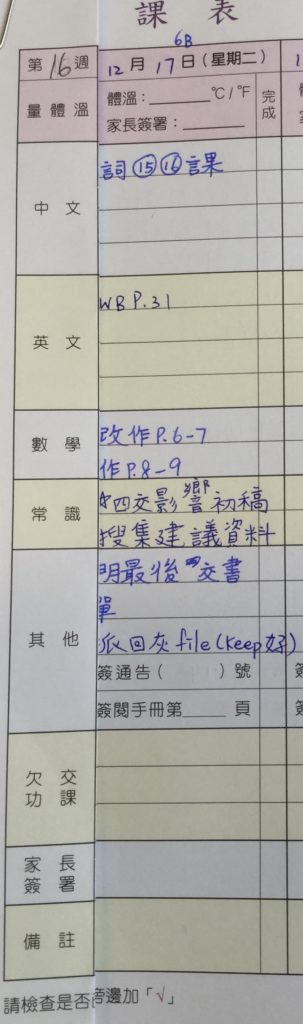 課表
6B
第16週 12月17日(星期二)
量體溫 體溫：______℃/℉ 完成
家長簽署：______
中文 詞⑮⑯課
英文 WB P.31
數學 改作P.6-7
作P.8-9
常識 四交影響初稿
搜集建議資料
其他 明最後交書
單
派回灰file(keep好)
簽通告( )號
簽閱手冊第____頁
欠交功課
家長簽署
備註
請檢查是否 旁邊加「√」